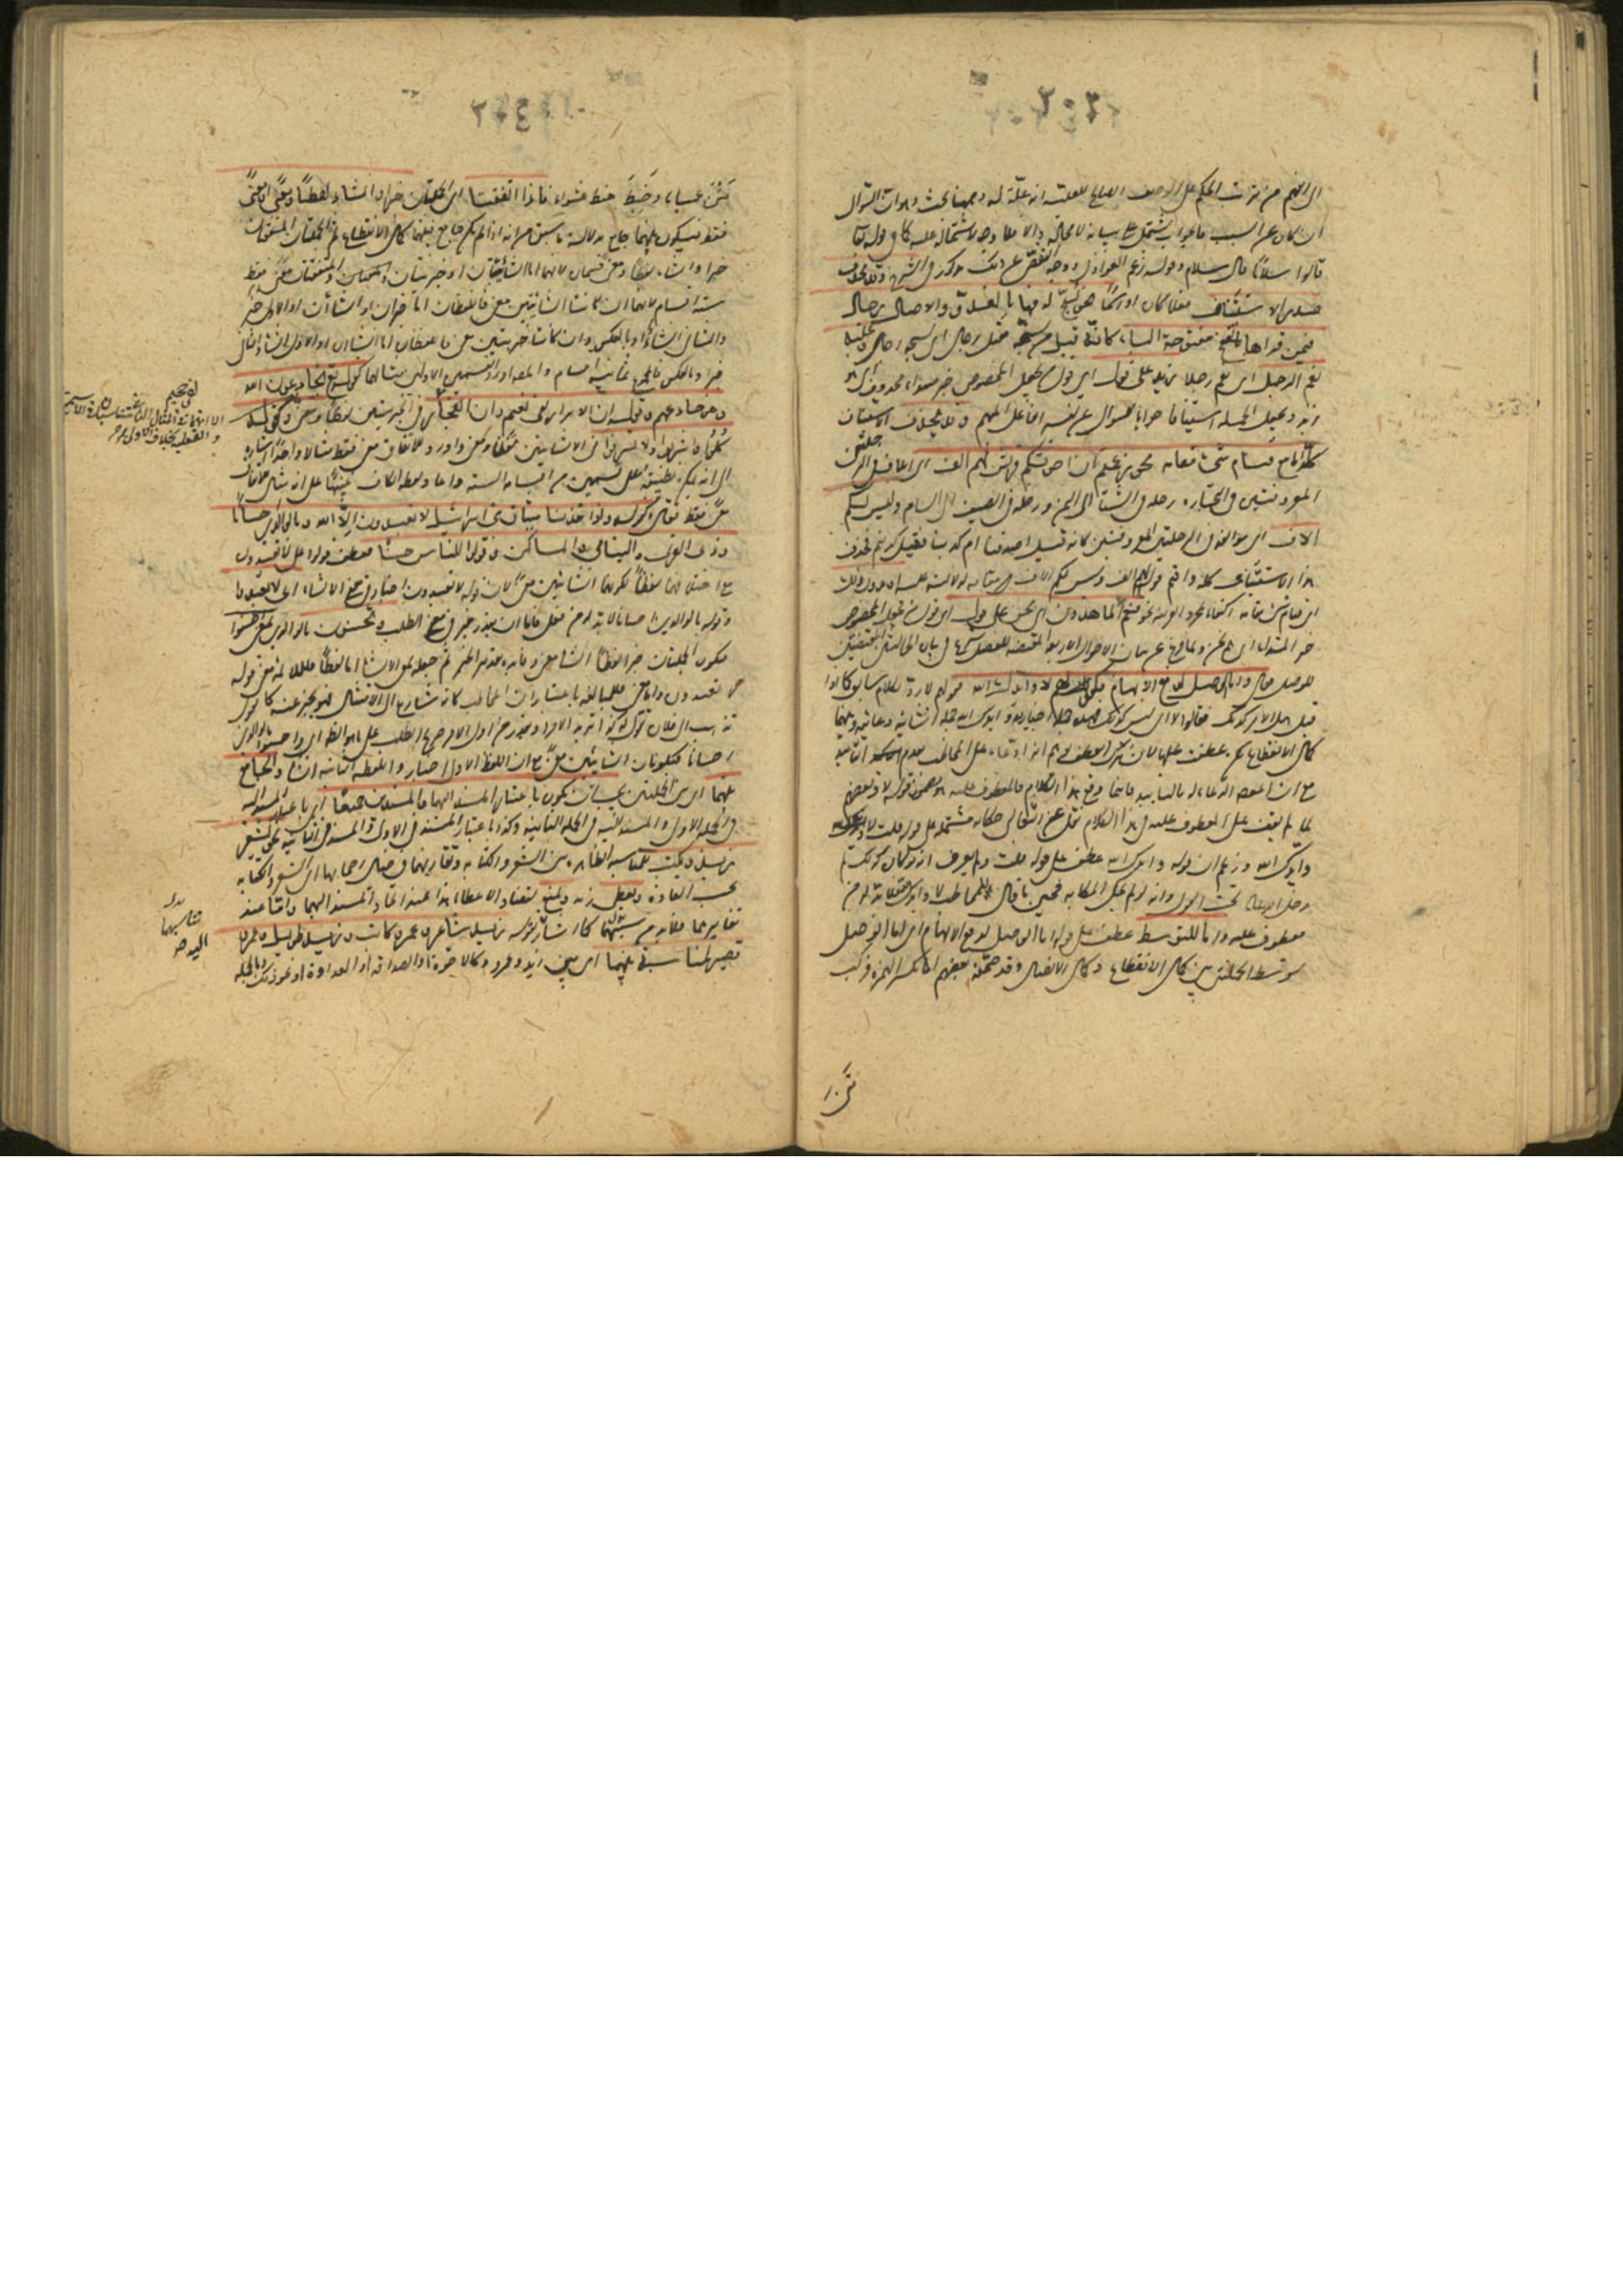 الى الفهم من ترتب الحكم على الوصف الصالح للعلية انه علة له وههنا بحث وهو ان السؤال
ان كان عن السبب فالجواب يشتمل على بيانه لا محالة والا فلا وجه لاشتماله عليه كما في قوله تعالى
قالوا سلاما قال سلام وقوله زعم العواذل ووجه التفصي عن ذلك مذكور في الشرح وقد يحذف
صدر الاستيناف فعلا كان او اسما نحو يسبح له فيها بالغدو والاصال رجال
فيمن قراها مفتوحة الباء كانه قيل من يسبحه فقيل رجال اى يسبحه رجال وعليه
نعم الرجل اى نعم رجلا زيد على قول اى قول من يجعل المخصوص خبر مبتدا محذوف اى هو
زيد ويجعل الجملة استينافا جوابا للسؤال عن تفسير الفاعل المبهم وقد يحذف الاستيناف
كله اما مع قيام شئ مقامه نحو زعمتم ان اخوتكم قريش لهم الف اى ايلاف في الرحلتين
المعروفتين في التجارة رحلة في الشتا الى اليمن ورحلة في الصيف الى الشام وليس لكم
الاف اى مؤالفة في الرحلتين المعروفتين كانه قيل اصدقنا ام كذبنا فقيل كذبتم فحذف
هذا الاستيناف كله واقيم قوله لهم الف وليس لكم الاف مقامه لدلالته عليه او بدون ذلك
اى قيام شئ مقامه اكتفاء بمجرد القرينة نحو فنعم الماهدون اى نحن على قول اى قول من يجعل المخصوص
خبر المبتدا اى هم نحن ولما فرغ من بيان الاحوال الاربعة المقتضية للفصل شرع في بيان الحالتين المقتضيتين
للوصل فقال واما الوصل لدفع الايهام فكقولهم لا وايدك الله فقولهم لا رد لكلام سابق كما اذا
قيل هل الامر كذلك فقالوا لا اى ليس كذلك فهذه جملة اخبارية وايدك الله جملة انشائية دعائية فبينهما
كمال الانقطاع لكن عطفت عليها لان ترك العطف يوهم انه دعاء على المخاطب بعدم التاييد
مع ان المقصود الدعاء له بالتاييد فاينما وقع هذا الكلام فالمعطوف عليه هو مضمون قوله لا وبعضهم
لما لم يقف على المعطوف عليه في هذا الكلام نقل عن الثعالبى حكاية مشتملة على قوله قلت لا
وايدك الله وزعم ان قوله وايدك الله عطف على قوله قلت ولم يعرف انه لو كان كذلك لم
يدخل الدعاء تحت القول وانه لو لم يحك الحكاية فحين ما قال للمخاطب لا وايدك الله فلا بد له من
معطوف عليه واما للتوسط عطف على قوله اما الوصل لدفع الايهام اى اما الوصل
لتوسط الجملتين بين كمال الانقطاع وكمال الاتصال وقد صحفه بعضهم اما بكسر الهمزة فركب
متن
متن عمياء وخبط خبط عشواء فاذا اتفقتا اى الجملتان خبرا وانشاء لفظا ومعنى او معنى
فقط فيكون بينهما جامع بدلالة ما سبق من انه اذا لم يكن جامع بينهما كمال الانقطاع ثم الجملتان المتفقتان
خبرا وانشاء لفظا ومعنى قسمان لانهما اما انشائيتان او خبريتان والمتفقتان معنى فقط
ستة اقسام لانهما ان كانتا انشائيتين معنى فاللفظان اما خبران او انشاآن او الاول خبر
والثانى انشاء او بالعكس وان كانتا خبريتين معنى فاللفظان اما انشاآن او الاول انشاء والثانى
خبر او بالعكس فالمجموع ثمانية اقسام والمصنف اورد للقسمين الاولين مثالهما كقوله تعالى يخادعون الله
وهو خادعهم وقوله ان الابرار لفى نعيم وان الفجار لفى جحيم في الخبريتين لفظا ومعنى وكقوله
كلوا واشربوا ولا تسرفوا في الانشائيتين لفظا ومعنى واورد للاتفاق معنى فقط مثالا واحدا اشارة
الى انه يمكن تطبيقه على قسمين من اقسامه الستة واعاد لفظ الكاف تنبيها على انه مثال للاتفاق
معنى فقط فقال وكقوله واذ اخذنا ميثاق بنى اسرائيل لا تعبدون الا الله وبالوالدين احسانا
وذى القربى واليتامى والمساكين وقولوا للناس حسنا فعطف قولوا على لا تعبدون
مع اختلافهما لفظا لكونهما انشائيتين معنى لان قوله لا تعبدون اخبار في معنى الانشاء اى لا تعبدوا
وقوله بالوالدين احسانا لا بد له من فعل فاما ان يقدر خبر في معنى الطلب وتحسنون بالوالدين بمعنى احسنوا
فيكون الجملتان خبرا لفظا انشاء معنى وفائدة تقدير الخبر ثم جعله بمعنى الانشاء اما لفظا فالملائمة مع قوله
لا تعبدون واما معنى فللمبالغة باعتبار ان المخاطب كانه سارع الى الامتثال فهو يخبر عنه كما تقول
تذهب الى فلان تقول له كذا تريد الامر او يقدر من اول الامر صريح الطلب على ما هو الظاهر اى واحسنوا بالوالدين
احسانا فتكونان انشائيتين معنى مع ان لفظ الاول اخبار ولفظ الثانية انشاء والجامع
بينهما اى بين الجملتين يجب ان يكون باعتبار المسند اليهما والمسندين جميعا اى باعتبار المسند اليه
في الجملة الاولى والمسند اليه في الجملة الثانية وكذا باعتبار المسند في الاولى والمسند في الثانية نحو يشعر
زيد ويكتب للمناسبة الظاهرة بين الشعر والكتابة وتقارنهما في خيال اصحابهما اى الشعر والكتابة
يحسب العادة ويعطى زيد ويمنع لتضاد الاعطاء والمنع هذا عند اتحاد المسند اليهما واما عند
تغايرهما فلا بد من تناسبهما كما اشار بقوله زيد شاعر وعمرو كاتب وزيد طويل وعمرو
قصير لمناسبة بينهما اى بين زيد وعمرو كالاخوة او الصداقة او العداوة او نحو ذلك وبالجملة